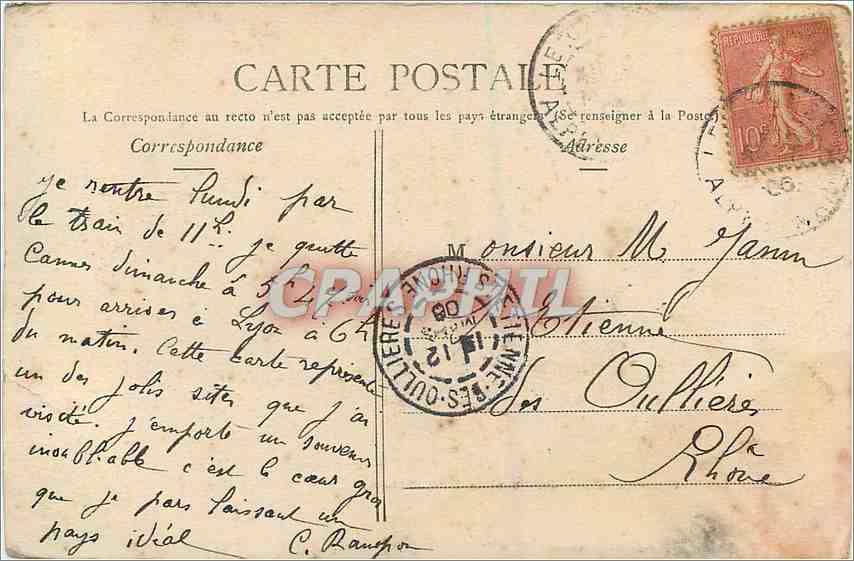 CARTE POSTALE
La Correspondance au recto n'est pas acceptée par tous les pays étrangers (Se renseigner à la Poste)
Correspondance
Adresse
je rentre lundi par
le train de 11h. je quitte
Cannes dimanche à 5h 47 soir
pour arriver à Lyon à 6h
du matin. Cette carte représente
un des jolis sites que j'ai
visité. J'emporte un souvenir
inoubliable c'est le cœur gros
que je pars laissant un
pays idéal
Monsieur M
St Etienne
des Oullières
Rhône
REPUBLIQUE
10c
ST ETIENNE-DES-OULLIERES RHONE
12
06
CPARPHIL